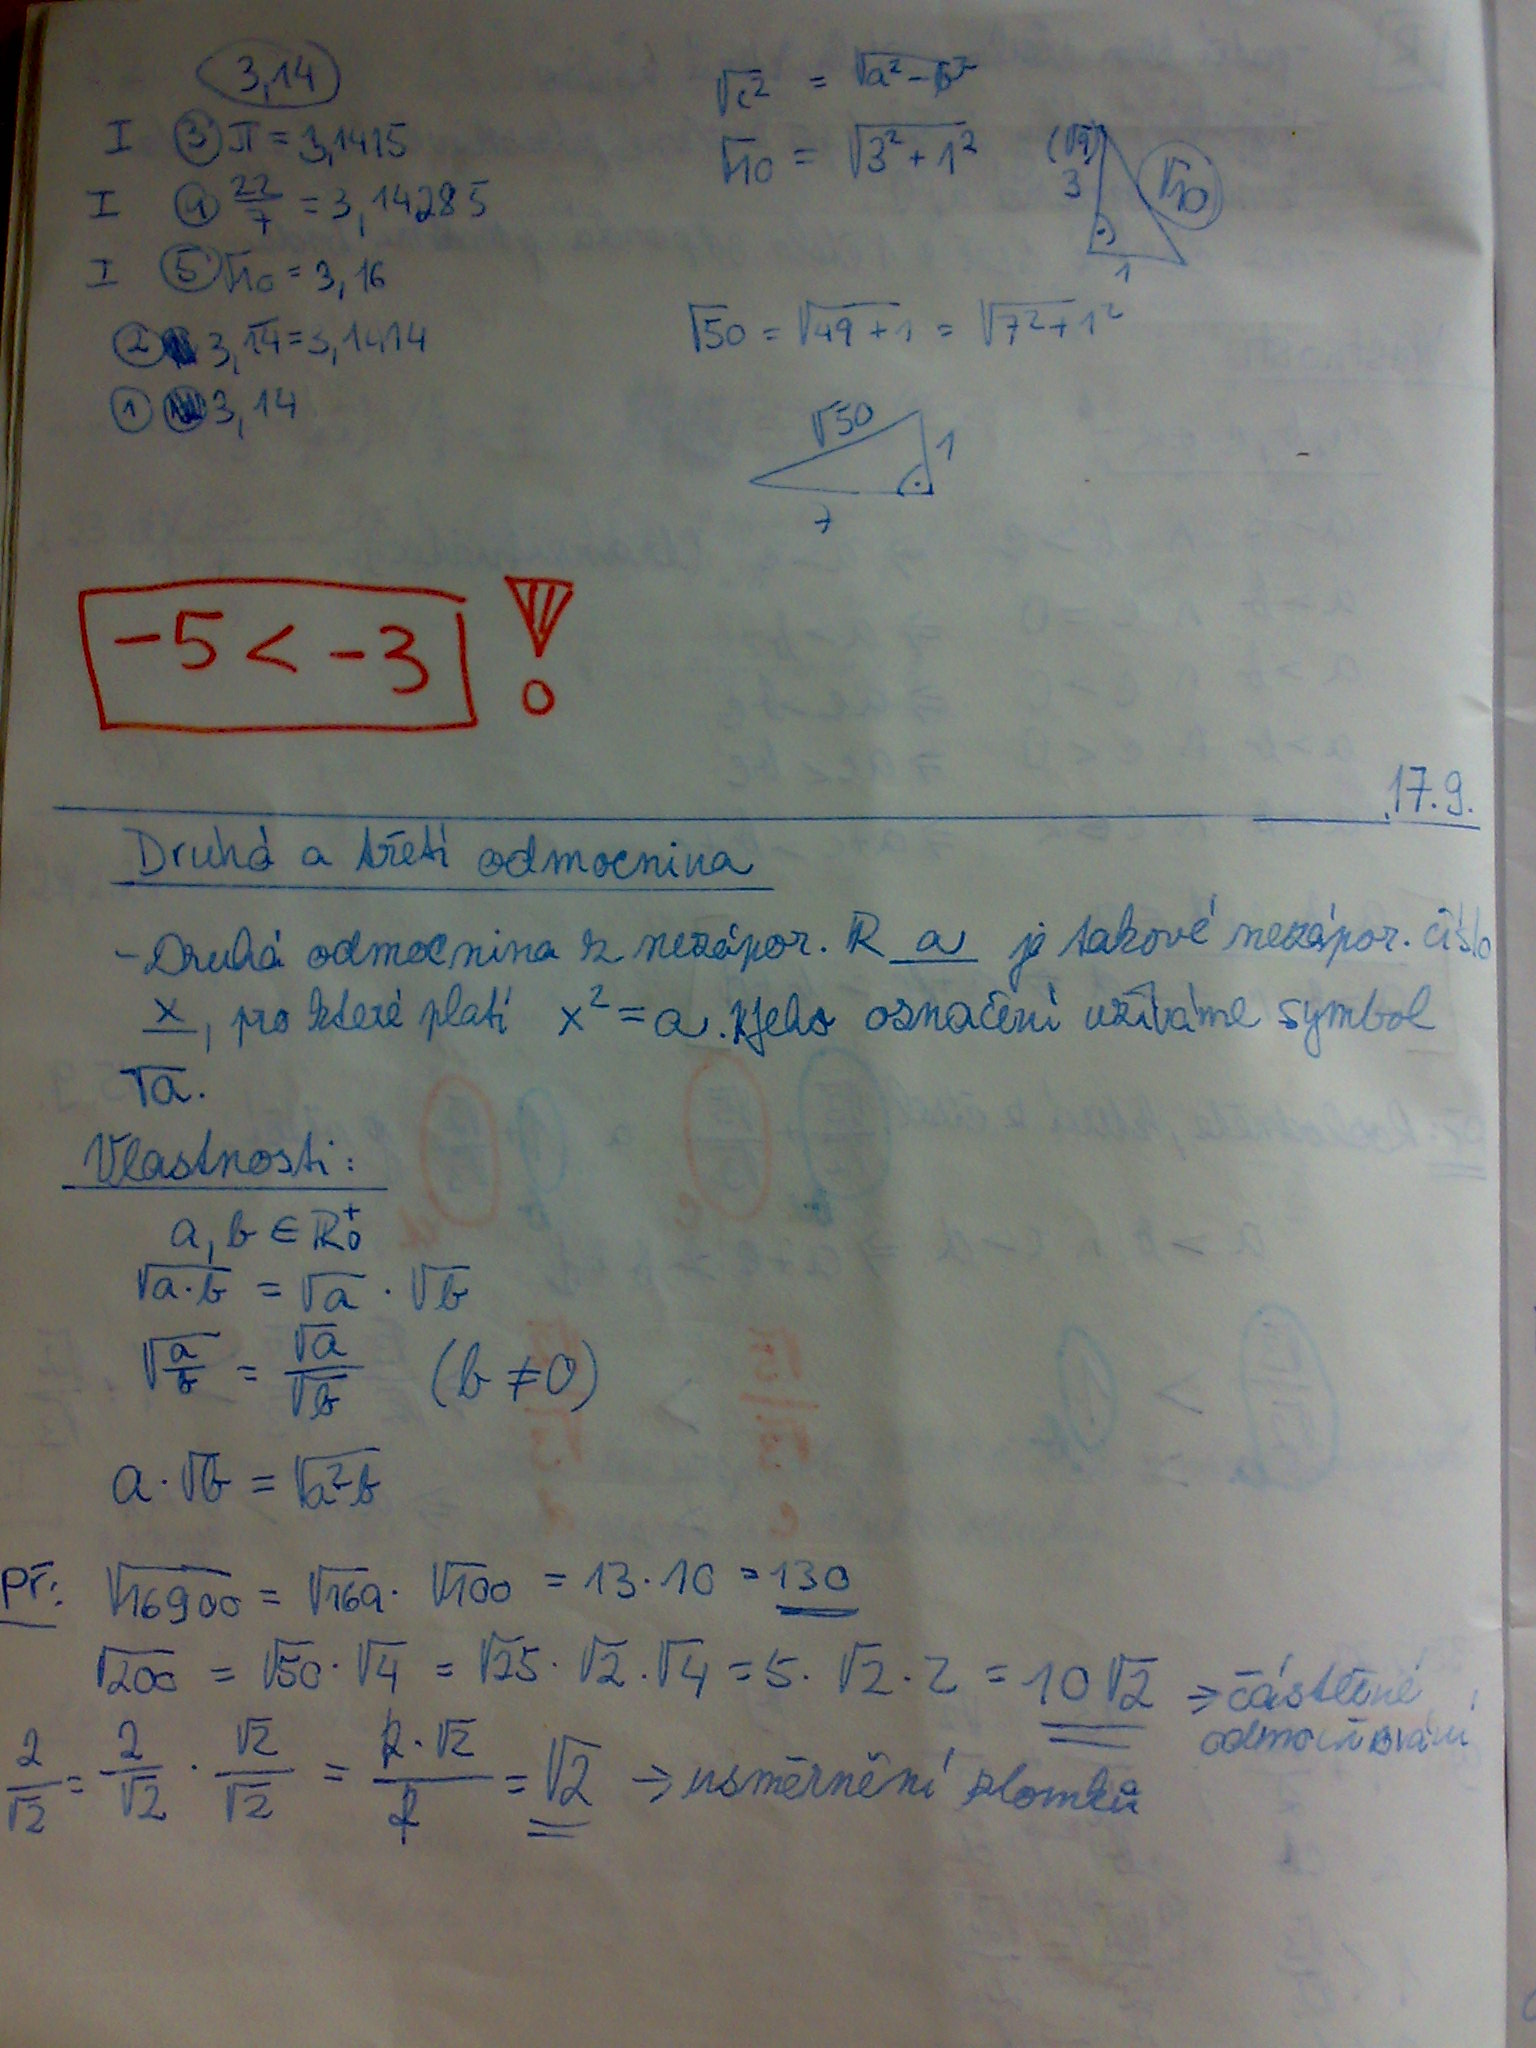 3,14
I ③ π = 3,1415
I ④ 22/7 = 3,14285
I ⑤ √10 = 3,16
② 3,14 = 3,1414
① 3,14
√c² = √a² - b²
√10 = √3² + 1²
(√9)
3
√10
1
√50 = √49 + 1 = √7² + 1²
√50
1
7
-5 < -3 !
17.9.
Druhá a třetí odmocnina
- Druhá odmocnina z nezápor. R a je takové nezápor. číslo
x, pro které platí x² = a. K jeho označení užíváme symbol
√a.
Vlastnosti:
a, b ∈ R₀⁺
√a·b = √a · √b
√a/b = √a/√b (b ≠ 0)
a·√b = √a²b
Př: √16900 = √169 · √100 = 13·10 = 130
√200 = √50·√4 = √25·√2·√4 = 5·√2·2 = 10√2 ⇒ částečné
odmocňování
2/√2 = 2/√2 · √2/√2 = 2·√2/2 = √2 → usměrnění zlomků